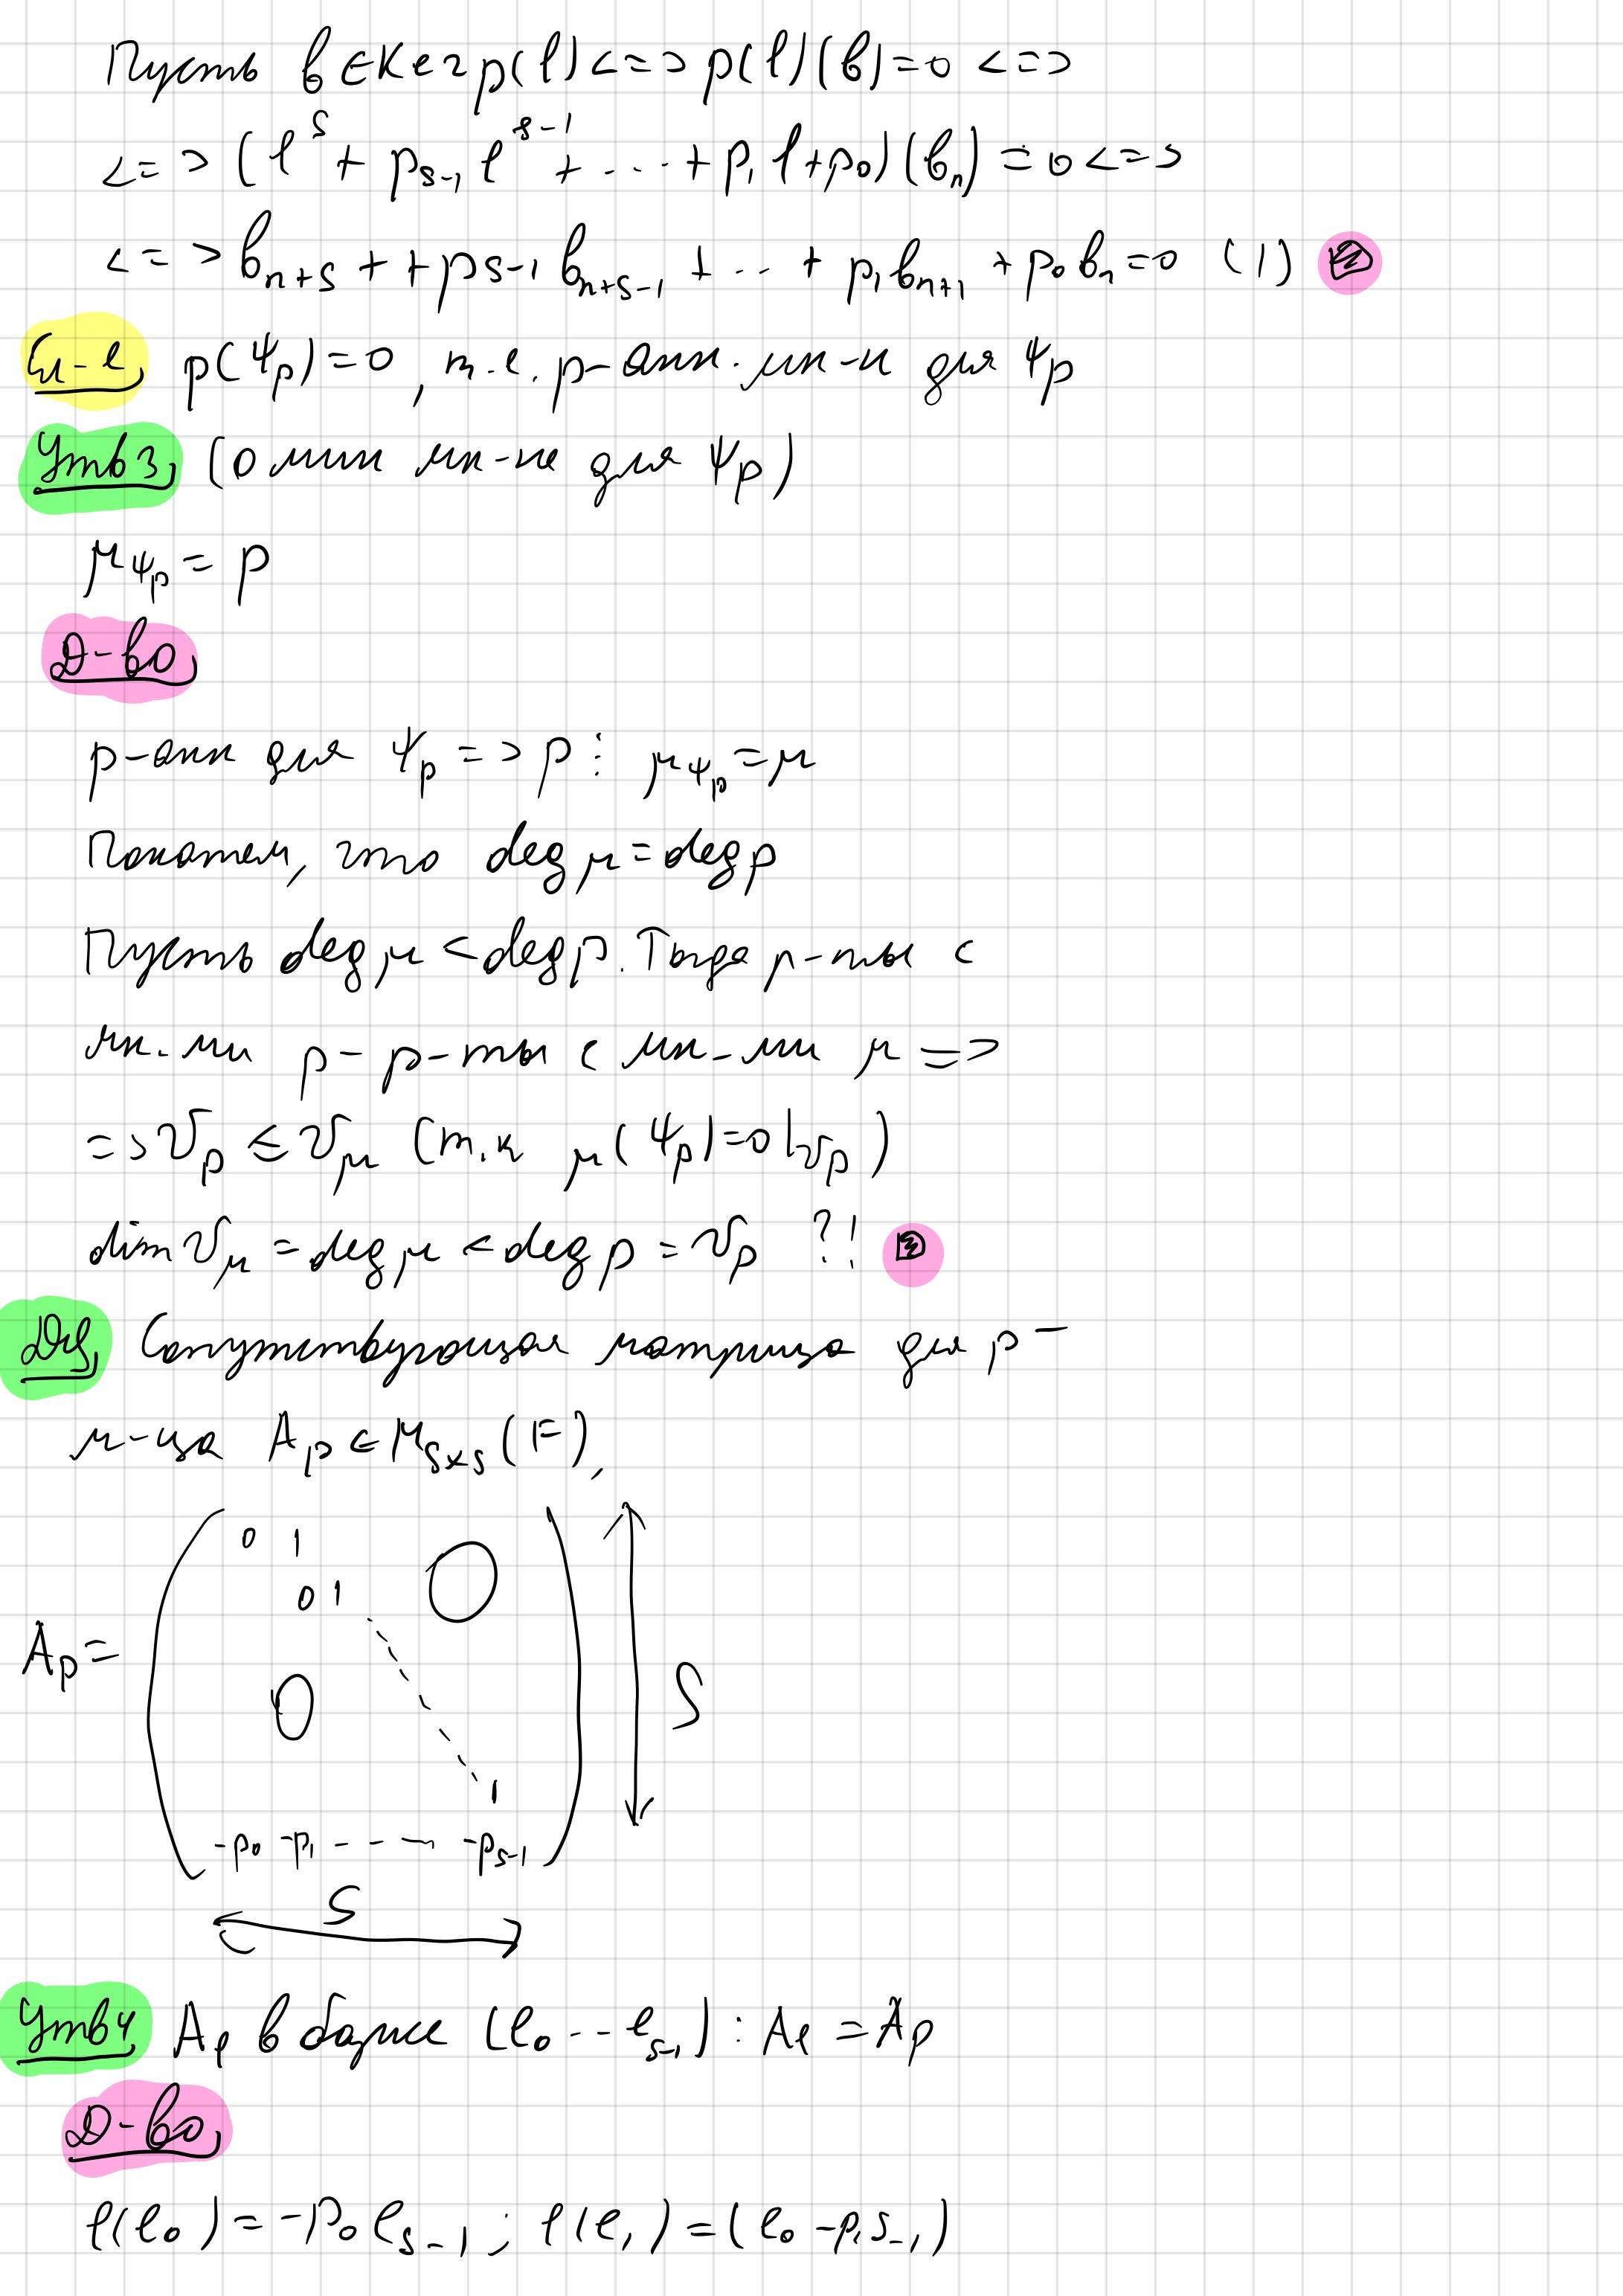 Пусть b ∈ Ker p(l) <=> p(l)(b)=0 <=>
<=> (l^s + p_{s-1} l^{s-1} + ... + p_1 l + p_0)(b_n) = 0 <=>
<=> b_{n+s} + + p_{s-1} b_{n+s-1} + ... + p_1 b_{n+1} + p_0 b_n = 0 (1)
Сл-е p(Ψ_p)=0, т.е. p-анн. мн-н для Ψ_p
Утв 3 (О мин мн-не для Ψ_p)
μ_{Ψ_p} = p
Д-во
p-анн для Ψ_p => p ⋮ μ_{Ψ_p} = μ
Покажем, что deg μ = deg p
Пусть deg μ < deg p. Тогда р-ты с
мн-ми p - р-ты с мн-ми μ =>
=> V_p ≤ V_μ (т.к μ(Ψ_p)=0|_{V_p})
dim V_μ = deg μ < deg p = V_p ?!
Def Сопутствующая матрица для p -
м-ца A_p ∈ M_{s×s}(F),
0 1
0 1 0
A_p =
0
S
1
-p_0 -p_1 - - - -p_{s-1}
S
Утв 4 A_l в базисе (e_0 ... e_{s-1}) : A_l = A_p
Д-во
l(e_0) = -p_0 e_{s-1} ; l(e_1) = (e_0 - p_1 s_{-1})